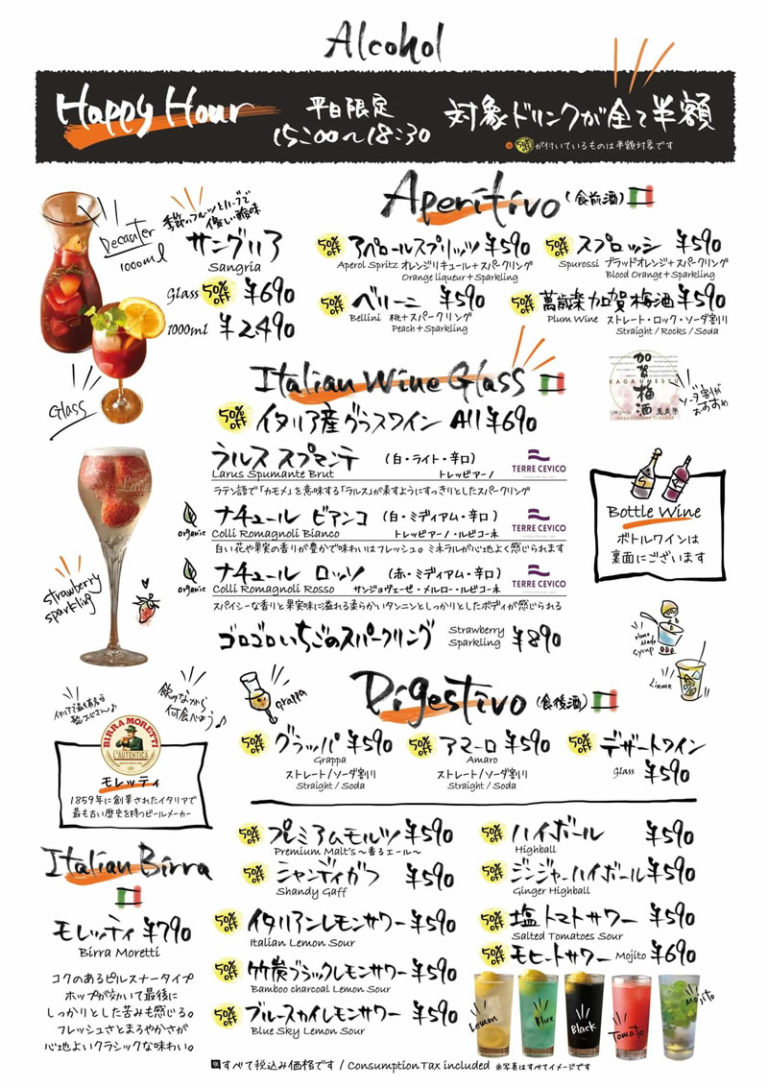 Alcohol
Happy Hour
平日限定
15:00〜18:30
対象ドリンクが全て半額
50% OFF が付いているものは半額対象です
Decanter
1000ml
季節のフルーツとハーブで
優しい酸味
サングリア
Sangria
Glass 50% OFF ¥690
1000ml ¥2490
Glass
Aperitivo (食前酒)
50% OFF アペロールスプリッツ ¥590
Aperol Spritz オレンジリキュール+スパークリング
Orange liqueur + Sparkling
50% OFF スプロッシ ¥590
Spurossi ブラッドオレンジ+スパークリング
Blood Orange + Sparkling
50% OFF ベリーニ ¥590
Bellini 桃+スパークリング
Peach + Sparkling
50% OFF 萬歳楽加賀梅酒 ¥590
Plum Wine ストレート・ロック・ソーダ割り
Straight / Rocks / Soda
加賀梅酒
KAGAUMESHU
ソーダ割が
おすすめ
Italian Wine Glass
50% OFF イタリア産グラスワイン All ¥690
ラルス スプマンテ (白・ライト・辛口)
Larus Spumante Brut トレッビアーノ
TERRE CEVICO
ラテン語で「カモメ」を意味する「ラルス」が表すようにすっきりとしたスパークリング
organic ナチュール ビアンコ (白・ミディアム・辛口)
Colli Romagnoli Bianco トレッビアーノ・ルビコーネ
TERRE CEVICO
白い花や果実の香りが豊かで味わいはフレッシュ。ミネラルが心地よく感じられます
organic ナチュール ロッソ (赤・ミディアム・辛口)
Colli Romagnoli Rosso サンジョヴェーゼ・メルロー・ルビコーネ
TERRE CEVICO
スパイシーな香りと果実味に溢れる柔らかいタンニンとしっかりとしたボディが感じられる
ゴロゴロいちごのスパークリング Strawberry Sparkling ¥890
strawberry
sparkling
Bottle Wine
ボトルワインは
裏面にございます
Home
Made
syrup
Lemon
Digestivo (食後酒)
Grappa
50% OFF グラッパ ¥590
Grappa
ストレート/ソーダ割り
Straight / Soda
50% OFF アマーロ ¥590
Amaro
ストレート/ソーダ割り
Straight / Soda
50% OFF デザートワイン
Glass ¥590
飲みながら
何食べよう♪
BIRRA MORETTI
L'AUTENTICA
モレッティ
1859年に創業されたイタリアで
最も古い歴史を持つビールメーカー
Italian Birra
モレッティ ¥790
Birra Moretti
コクのあるピルスナータイプ
ホップが効いて最後に
しっかりとした苦みも感じる。
フレッシュさとまろやかさが
心地よいクラシックな味わい。
50% OFF プレミアムモルツ ¥590
Premium Malt's 〜香るエール〜
50% OFF シャンディガフ ¥590
Shandy Gaff
50% OFF イタリアンレモンサワー ¥590
Italian Lemon Sour
50% OFF 竹炭ブラックレモンサワー ¥590
Bamboo charcoal Lemon Sour
50% OFF ブルースカイレモンサワー ¥590
Blue Sky Lemon Sour
50% OFF ハイボール ¥590
Highball
50% OFF ジンジャーハイボール ¥590
Ginger Highball
50% OFF 塩トマトサワー ¥590
Salted Tomatoes Sour
50% OFF モヒートサワー Mojito ¥690
Lemon
Blue
Black
Tomato
Mojito
※すべて税込み価格です / Consumption Tax included ※写真はすべてイメージです